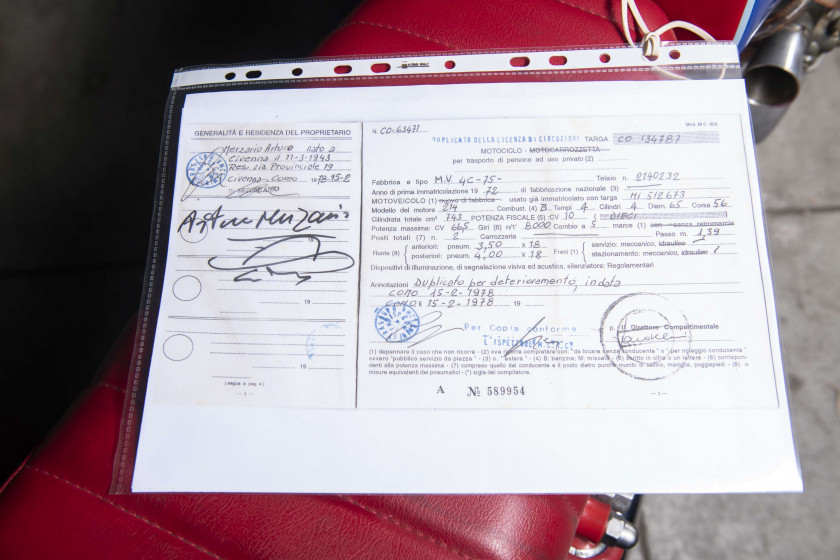 GENERALITÀ E RESIDENZA DEL PROPRIETARIO
Merzario Arturo nato a
Civenna il 11-3-1943
Res. Via Provinciale 19
Civenna Como 1978-15-2
IL SEGRETARIO
Arturo Merzario
19
19
Mod. M.C. 802
N. CO-63471
DUPLICATO DELLA LICENZA DI CIRCOLAZIONE TARGA CO 134787
MOTOCICLO - MOTOCARROZZETTA
per trasporto di persone ad uso privato (2)
Fabbrica e tipo M.V. 4C-75- Telaio n. 2140232
Anno di prima immatricolazione 19 72 di fabbricazione nazionale (3)
MOTOVEICOLO (1) nuovo di fabbrica - usato già immatricolato con targa MI 512673
Modello del motore 214 Combust. (4) B Tempi 4 Cilindri 4 Diam. 65 Corsa 56
Cilindrata totale cm³ 743 POTENZA FISCALE (5) CV 10 ( DIECI
Potenza massima: CV 66,5 Giri (6) n/1' 8000 Cambio a 5 marce (1) con - senza retromarcia
Posti totali (7) n. 2 Carrozzeria Passo m. 1,39
Ruote (8) anteriori: pneum. 3,50 x 18 Freni (1) servizio: meccanico, idraulico
posteriori: pneum. 4,00 x 18 stazionamento: meccanico, idraulico
Dispositivi di illuminazione, di segnalazione visiva ed acustica, silenziatore: Regolamentari
Annotazioni Duplicato per deterioramento, in data
Como 15-2-1978
Como li 15-2-1978 19
Per Copia conforme
p. Il Direttore Compartimentale
L'ISPETTORE
(1) depennare il caso che non ricorre - (2) ove occorra completare con: "da locare senza conducente" o "per noleggio conducente"
ovvero "pubblico servizio da piazza" - (3) o "estera" - (4) B: benzina; M: miscela - (5) ripetuto in cifre e in lettere - (6) corrispon-
denti alla potenza massima - (7) compreso quello del conducente e il posto dietro purché munito di sellino, maniglia, poggiapiedi - (8) o
misure equivalenti dei pneumatici - (*) sigla del compilatore.
A № 589954